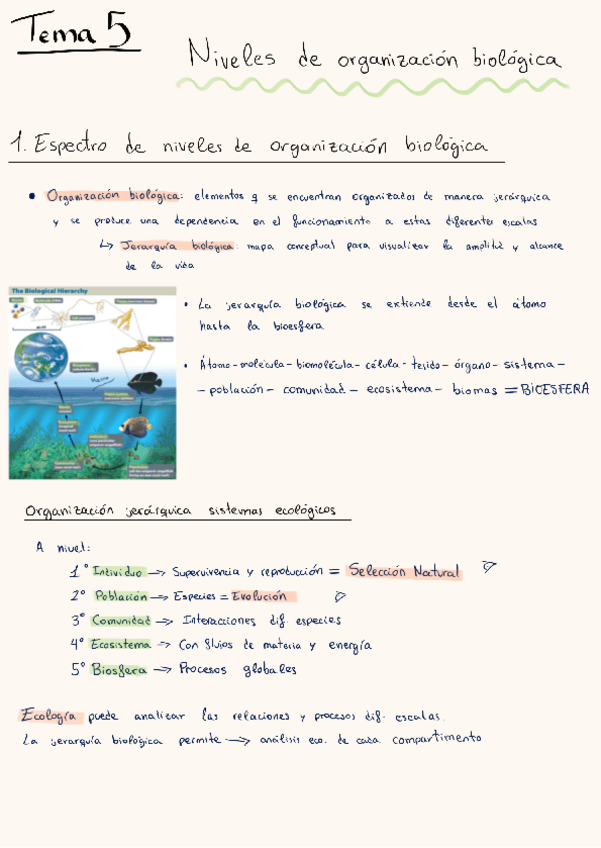 Tema 5
Niveles de organización biológica
1. Espectro de niveles de organización biológica
• Organización biológica: elementos q se encuentran organizados de manera jerárquica
y se produce una dependencia en el funcionamiento a estas diferentes escalas
↳ Jerarquía biológica: mapa conceptual para visualizar la amplitud y alcance
de la vida
The Biological Hierarchy
• La jerarquía biológica se extiende desde el átomo
hasta la bioesfera
• Átomo - molécula - biomolécula - célula - tejido - órgano - sistema -
- población - comunidad - ecosistema - biomas = BIOESFERA
Organización jerárquica sistemas ecológicos
A nivel:
1º Individuo → Supervivencia y reproducción = Selección Natural
2º Población → Especies = Evolución
3º Comunidad → Interacciones dif. especies
4º Ecosistema → Con flujos de materia y energía
5º Biosfera → Procesos globales
Ecología puede analizar las relaciones y procesos dif. escalas.
La jerarquía biológica permite → análisis eco. de cada compartimento